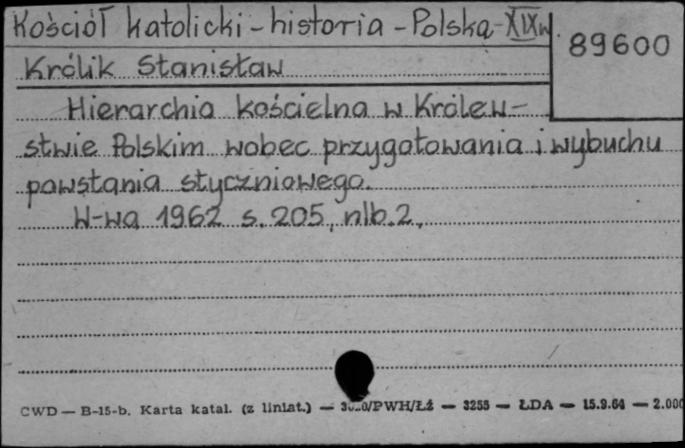 Kościół katolicki - historia - Polska - XIX w.
89600
Królik Stanisław
Hierarchia kościelna w Królew-
stwie Polskim wobec przygotowania i wybuchu
powstania styczniowego.
W-wa 1962 s. 205, nlb. 2,
CWD — B-15-b. Karta katal. (z liniat.) — /PWH/Łż — 3255 — ŁDA — 15.9.64 — 2.000